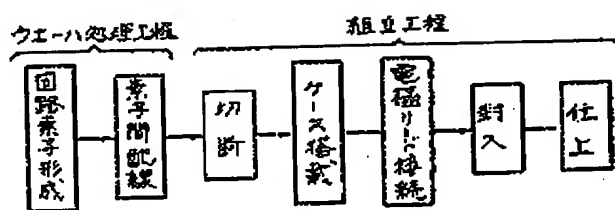 ウエーハ処理工程
組立工程
回路素子形成
素子間配線
切断
ケース搭載
電磁リード接続
封入
仕上